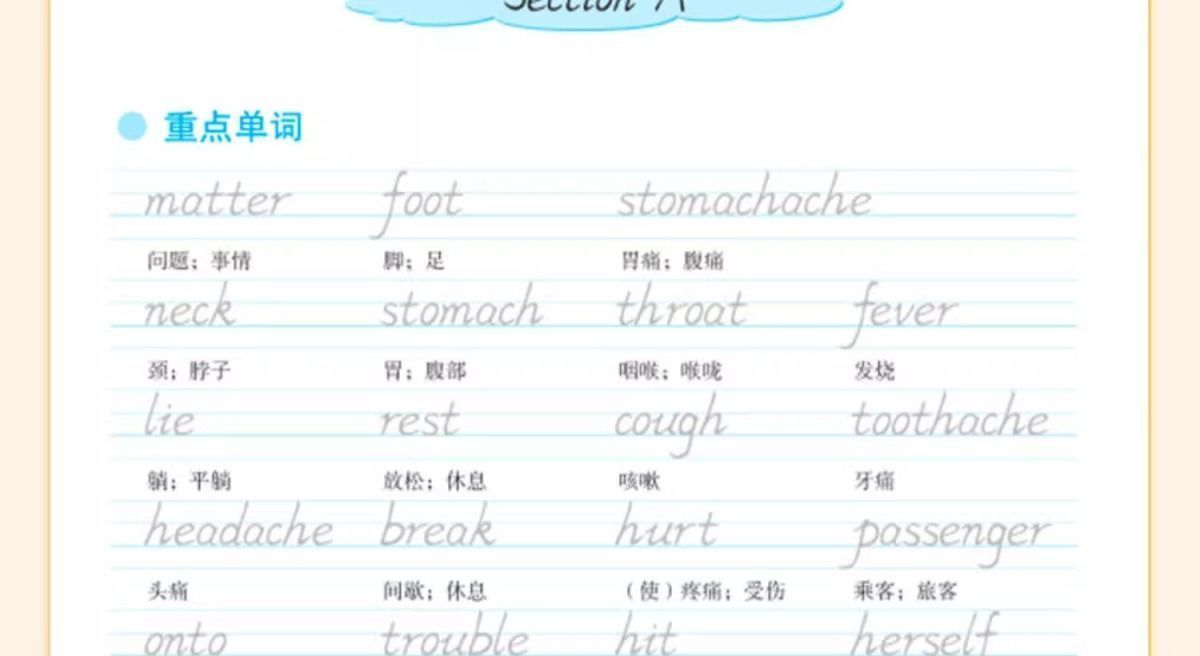 Section A
重点单词
matter foot stomachache
问题；事情 脚；足 胃痛；腹痛
neck stomach throat fever
颈；脖子 胃；腹部 咽喉；喉咙 发烧
lie rest cough toothache
躺；平躺 放松；休息 咳嗽 牙痛
headache break hurt passenger
头痛 间歇；休息 （使）疼痛；受伤 乘客；旅客
onto trouble hit herself